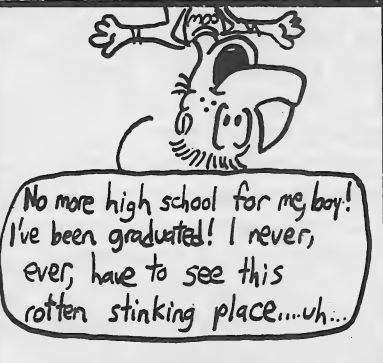 No more high school for me, boy!
I've been graduated! I never,
ever, have to see this
rotten stinking place....uh...